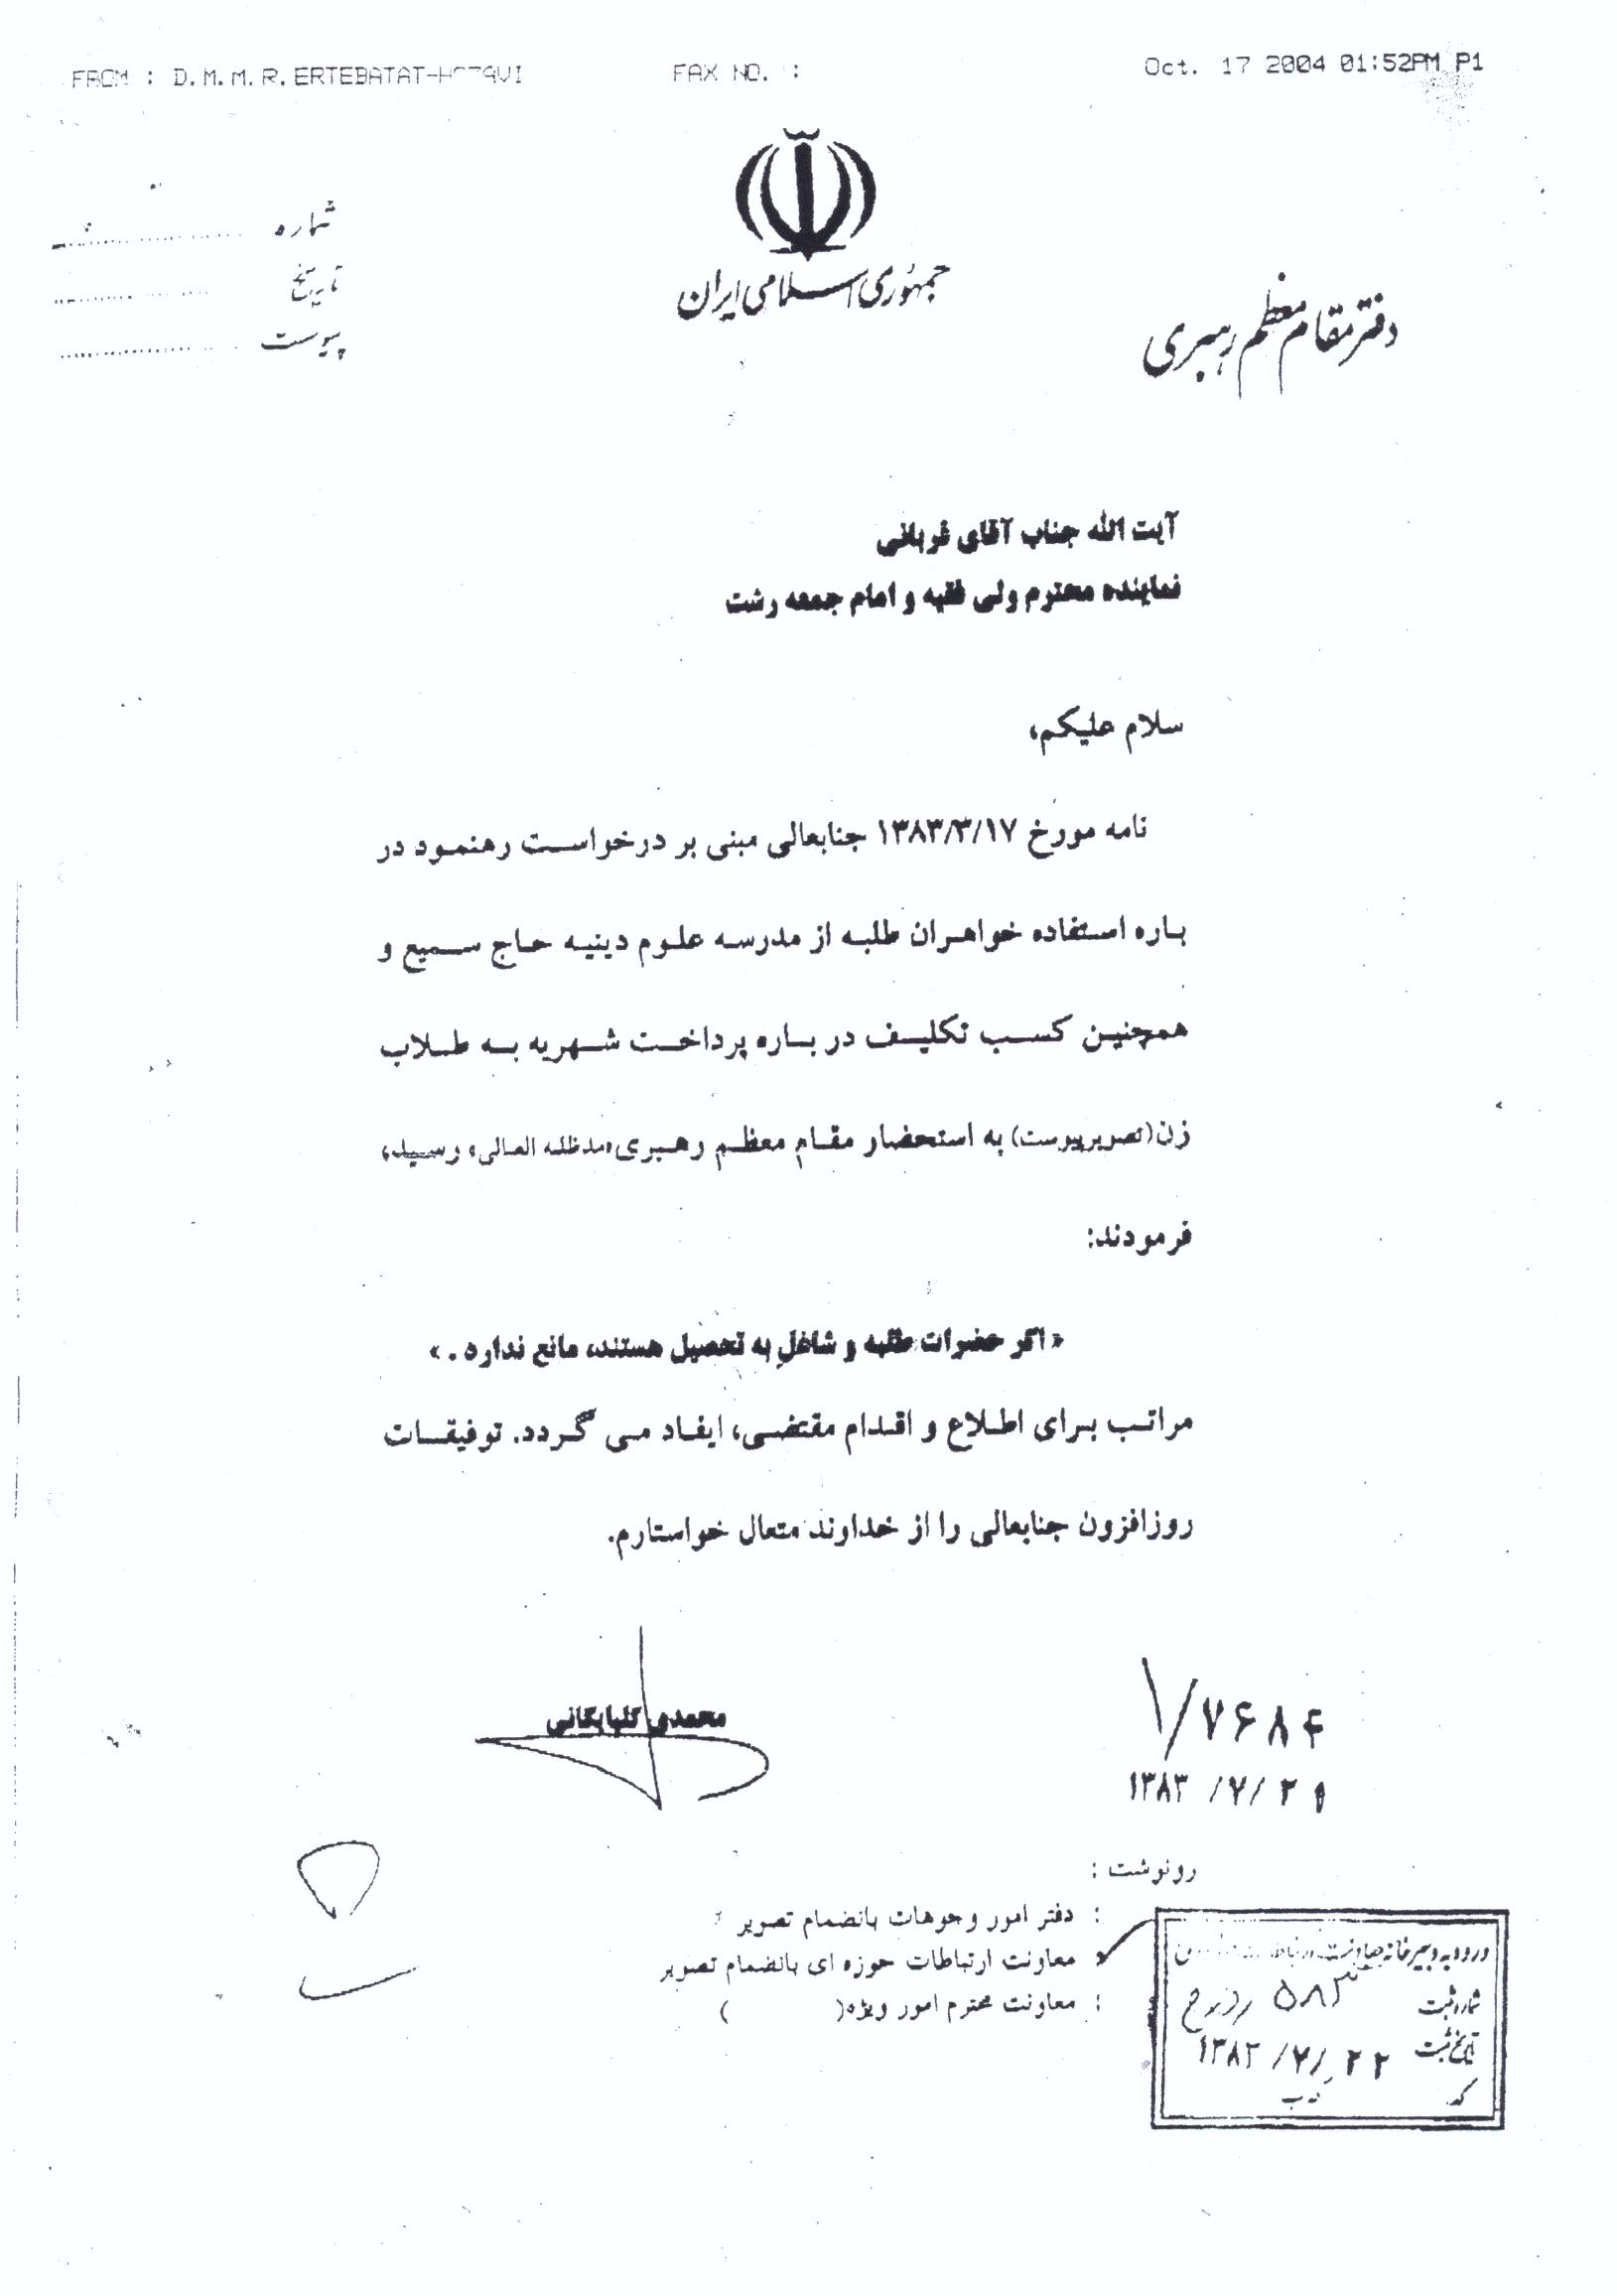 FROM : D.M.M.R.ERTEBATAT FAX NO. : Oct. 17 2004 01:52PM P1
جمهوری اسلامی ایران
دفتر مقام معظم رهبری
شماره
تاریخ
پیوست
آیت الله جناب آقای قربانی
نماینده محترم ولی فقیه و امام جمعه رشت
سلام علیکم،
نامه مورخ ۱۳۸۳/۳/۱۷ جنابعالی مبنی بر درخواست رهنمود در
باره استفاده خواهران طلبه از مدرسه علوم دینیه حاج سمیع و
همچنین کسب تکلیف در باره پرداخت شهریه به طلاب
زن(تصویرپیوست) به استحضار مقام معظم رهبری«مدظله العالی» رسید،
فرمودند:
« اگر حضرات طلبه و شاغل به تحصیل هستند، مانع ندارد. »
مراتب برای اطلاع و اقدام مقتضی، ایفاد می گردد. توفیقات
روزافزون جنابعالی را از خداوند متعال خواستارم.
محمدی گلپایگانی
۱/۷۶۸۴
۱۳۸۳ /۷/ ۲۱
رونوشت :
: دفتر امور وجوهات بانضمام تصویر
معاونت ارتباطات حوزه ای بانضمام تصویر
: معاونت محترم امور ویژه( )
ورود به دبیرخانه معاونت ارتباطات
شماره ثبت ۵۸۳
تاریخ ثبت ۱۳۸۳ /۷/ ۲۲
کد